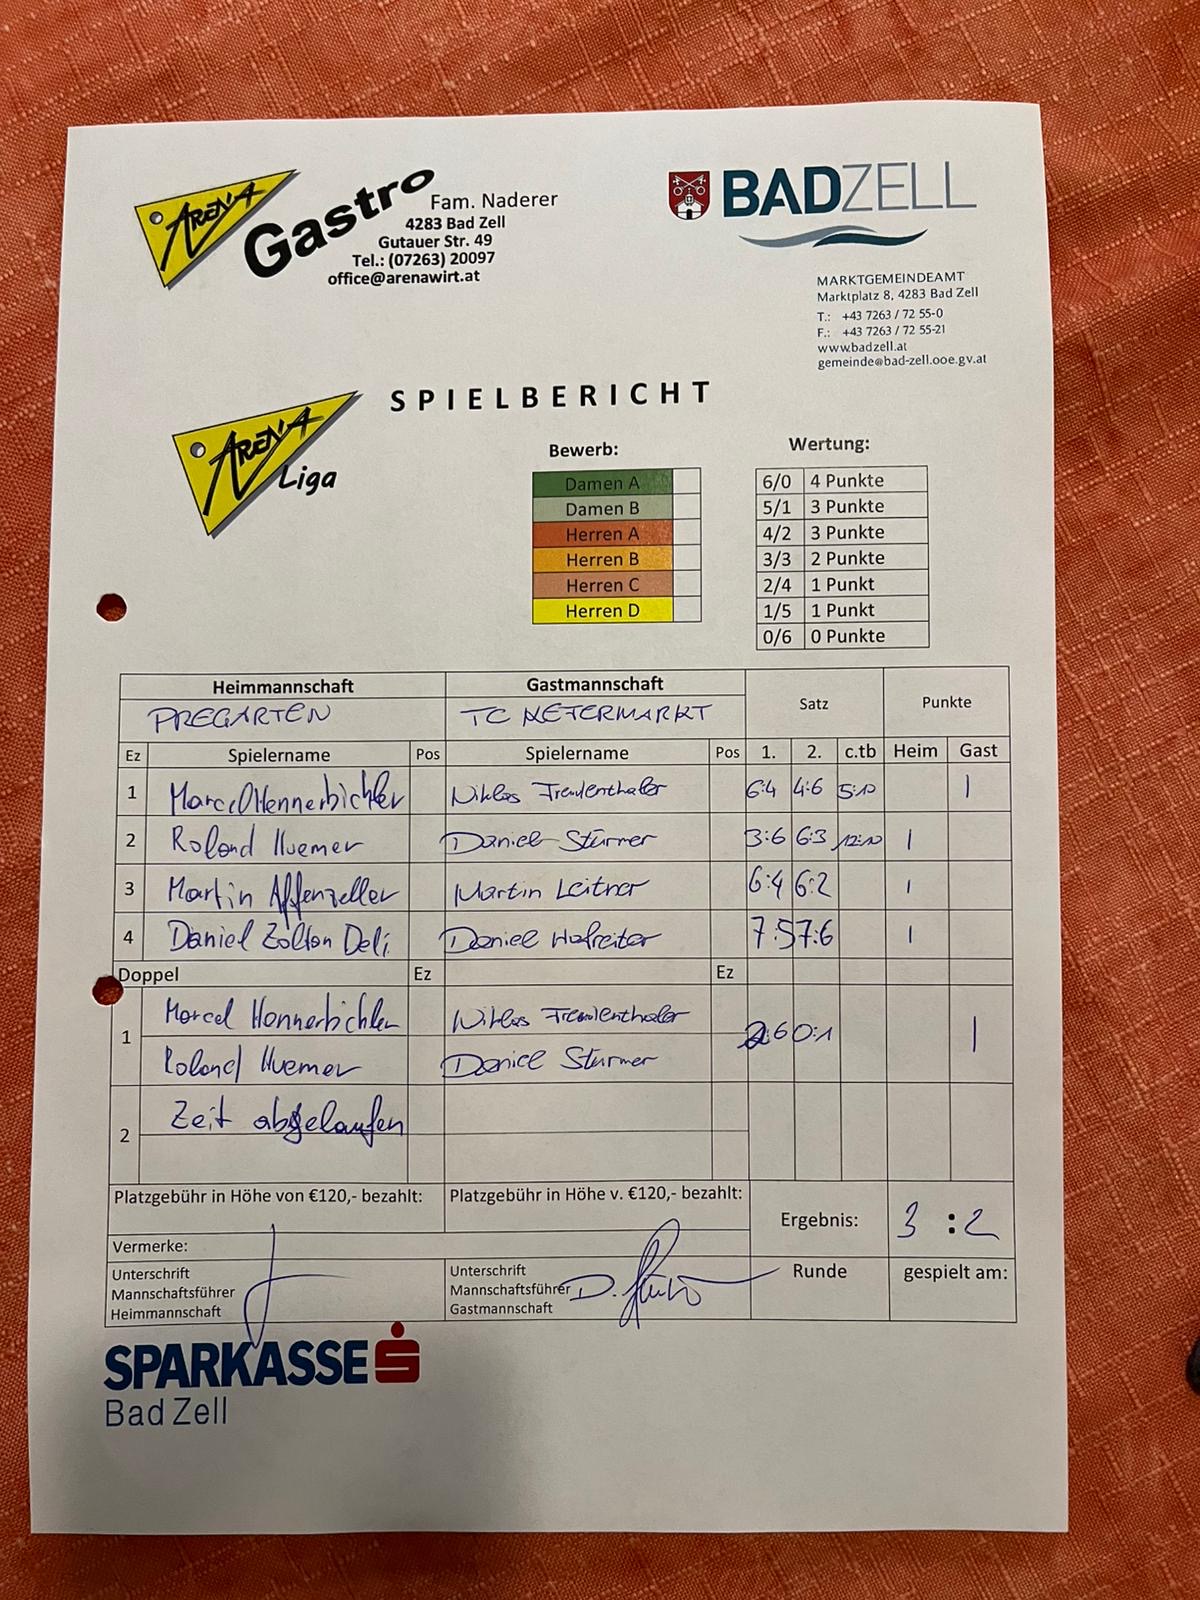 ARENA Gastro Fam. Naderer
4283 Bad Zell
Gutauer Str. 49
Tel.: (07263) 20097
office@arenawirt.at
BADZELL
MARKTGEMEINDEAMT
Marktplatz 8, 4283 Bad Zell
T.: +43 7263 / 72 55-0
F.: +43 7263 / 72 55-21
www.badzell.at
gemeinde@bad-zell.ooe.gv.at
SPIELBERICHT
ARENA Liga
Bewerb:
Damen A
Damen B
Herren A
Herren B
Herren C
Herren D
Wertung:
6/0 4 Punkte
5/1 3 Punkte
4/2 3 Punkte
3/3 2 Punkte
2/4 1 Punkt
1/5 1 Punkt
0/6 0 Punkte
Heimmannschaft Gastmannschaft Satz Punkte
PREGARTEN TC KEFERMARKT
Ez Spielername Pos Spielername Pos 1. 2. c.tb Heim Gast
1 Marcel Hennerbichler Niklas Freudenthaler 6:4 4:6 5:10 1
2 Roland Huemer Daniel Stürmer 3:6 6:3 12:10 1
3 Martin Affenzeller Martin Leitner 6:4 6:2 1
4 Daniel Zoltan Deli Daniel Hofreiter 7:5 7:6 1
Doppel Ez Ez
1 Marcel Hennerbichler Niklas Freudenthaler 2:6 0:1 1
Roland Huemer Daniel Stürmer
2 Zeit abgelaufen
Platzgebühr in Höhe von €120,- bezahlt: Platzgebühr in Höhe v. €120,- bezahlt: Ergebnis: 3 : 2
Vermerke:
Unterschrift
Mannschaftsführer
Heimmannschaft
Unterschrift
Mannschaftsführer
Gastmannschaft
Runde gespielt am:
SPARKASSE
Bad Zell